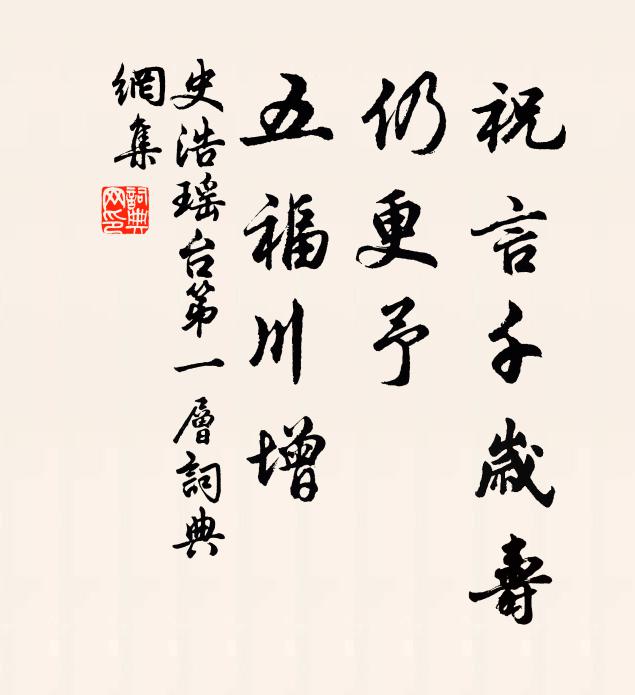 祝言千歲壽
仍更予
五福川增
史浩瑶台第一層詞典
網集
詞典网印